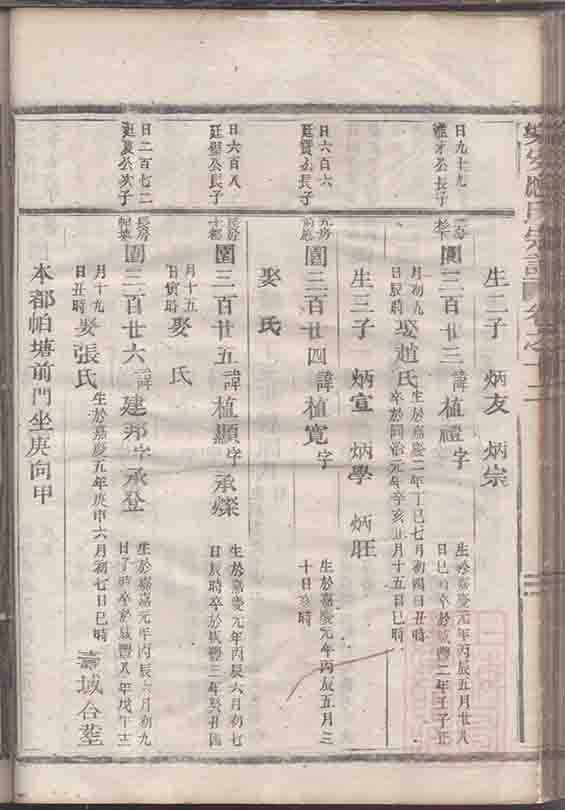 生二子 炳友 炳宗
日九十九
公長子
圍三百廿三諱植禮字
生於嘉慶元年丙辰五月廿八
日巳時卒於咸豐二年壬子正
月初九
日辰時
娶趙氏
生於嘉慶二年丁巳七月初四日丑時
卒於同治元年辛亥正月十五日巳時
生三子 炳宣 炳學 炳旺
日六百六
廷賓公長子
圍三百廿四諱植寬字
生於嘉慶元年丙辰五月三
十日亥時
娶氏
日六百八
廷舉公長子
圍三百廿五諱植顯字承燦
生於嘉慶元年丙辰六月初七
日辰時卒於咸豐三年癸丑四
月十五
日寅時
娶氏
日二百七二
公次子
長房
圍三百廿六諱建邦字承登
生於嘉慶元年丙辰六月初九
日子時卒於咸豐八年戊午十二
月十九
日丑時
娶張氏
生於嘉慶五年庚申六月初七日巳時
壽域合塟
本都帕塘前門坐庚向甲